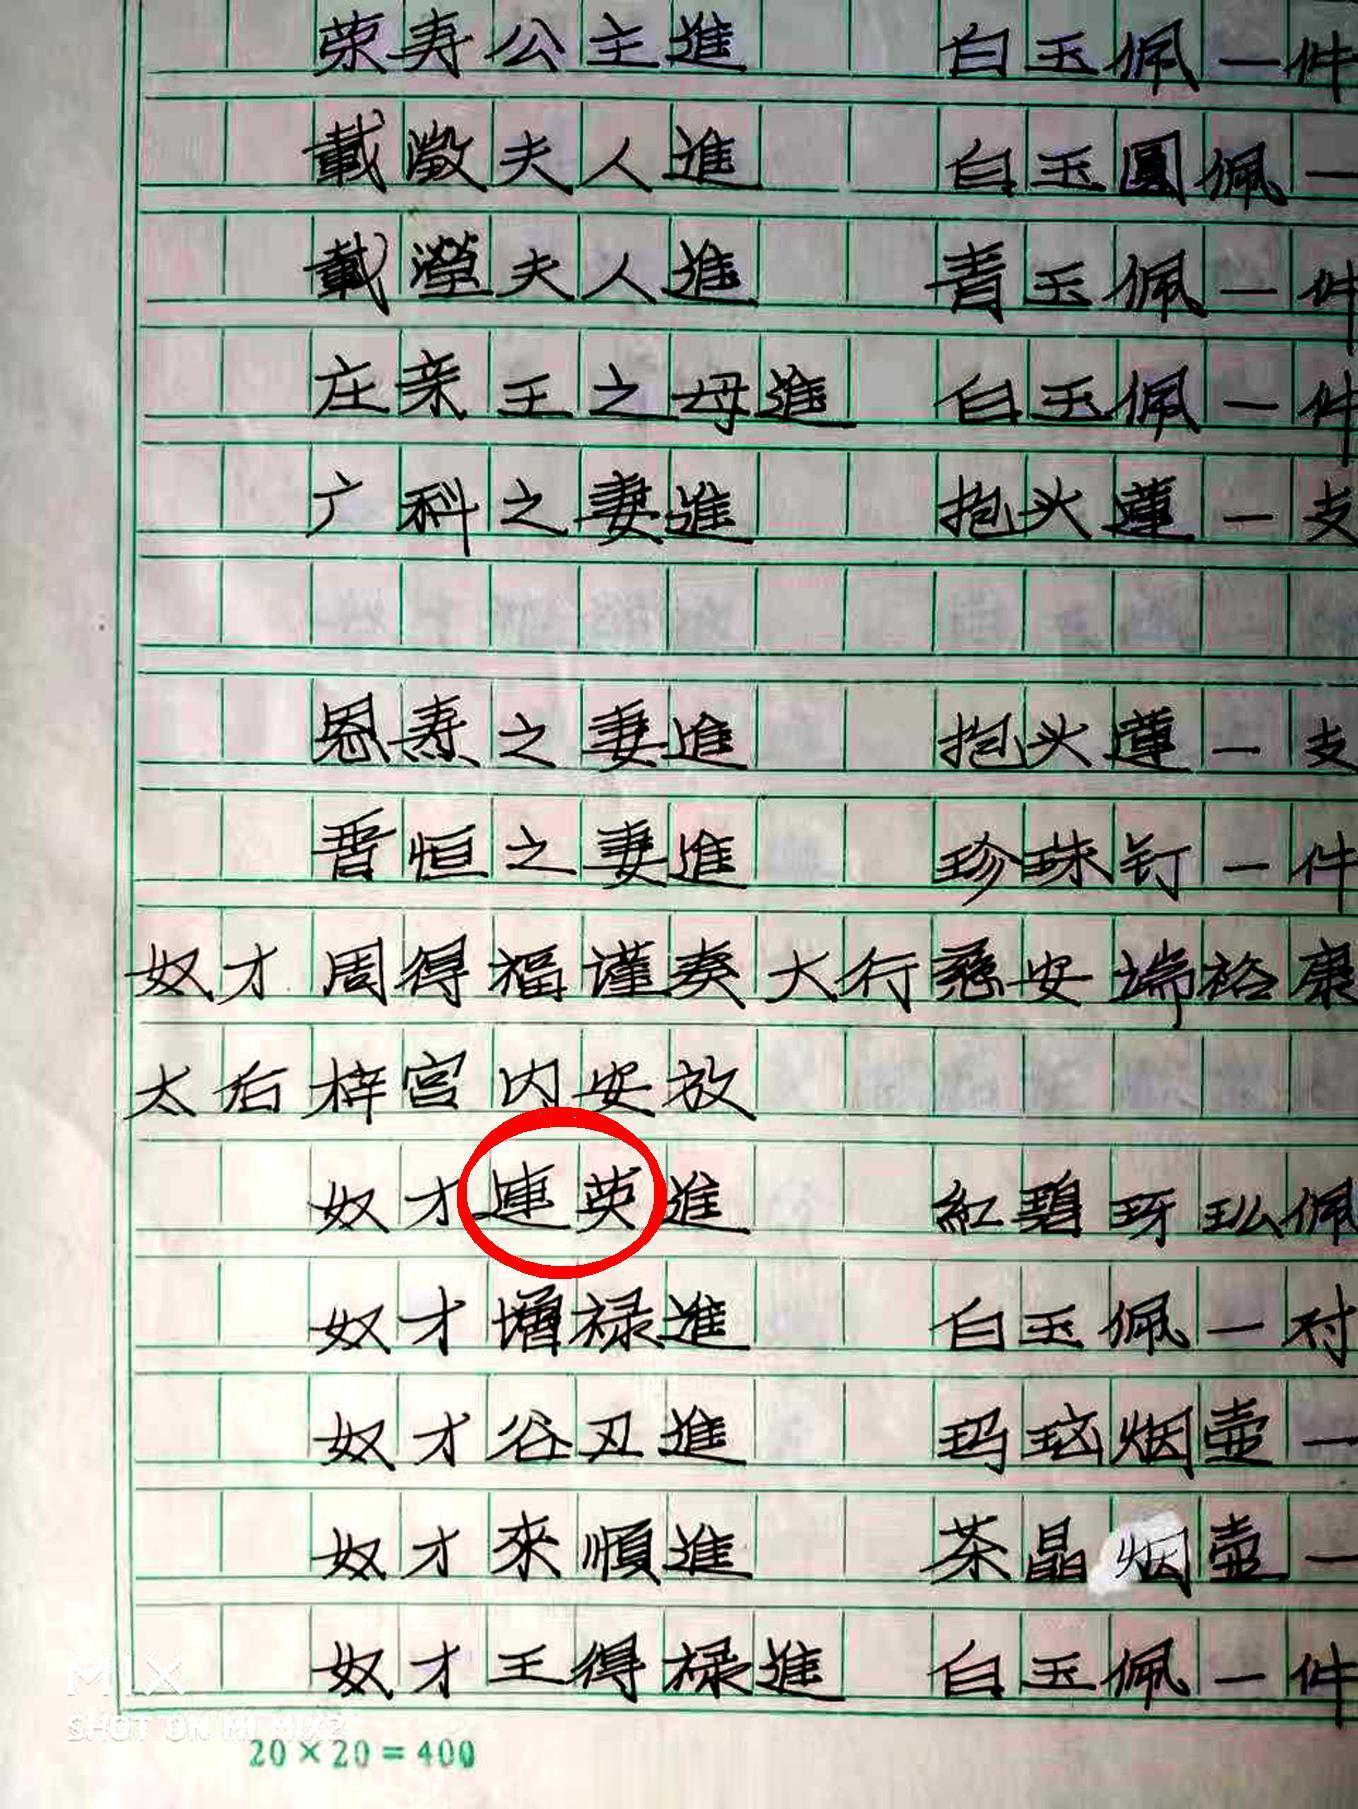 荣寿公主進 白玉佩一件
載澂夫人進 白玉圓佩一
載瀅夫人進 青玉佩一件
庄亲王之母進 白玉佩一件
广科之妻進 抱头蓮一支
恩寿之妻進 抱头蓮一支
晋恒之妻進 珍珠钉一件
奴才周得福谨奏大行慈安端裕康
太后梓宫内安放
奴才連英進 紅碧玡玜佩
奴才增禄進 白玉佩一对
奴才谷丑進 玛瑙烟壶一
奴才來順進 茶晶烟壶一
奴才王得禄進 白玉佩一件
MIX
SHOT ON MI MIX2
20×20=400